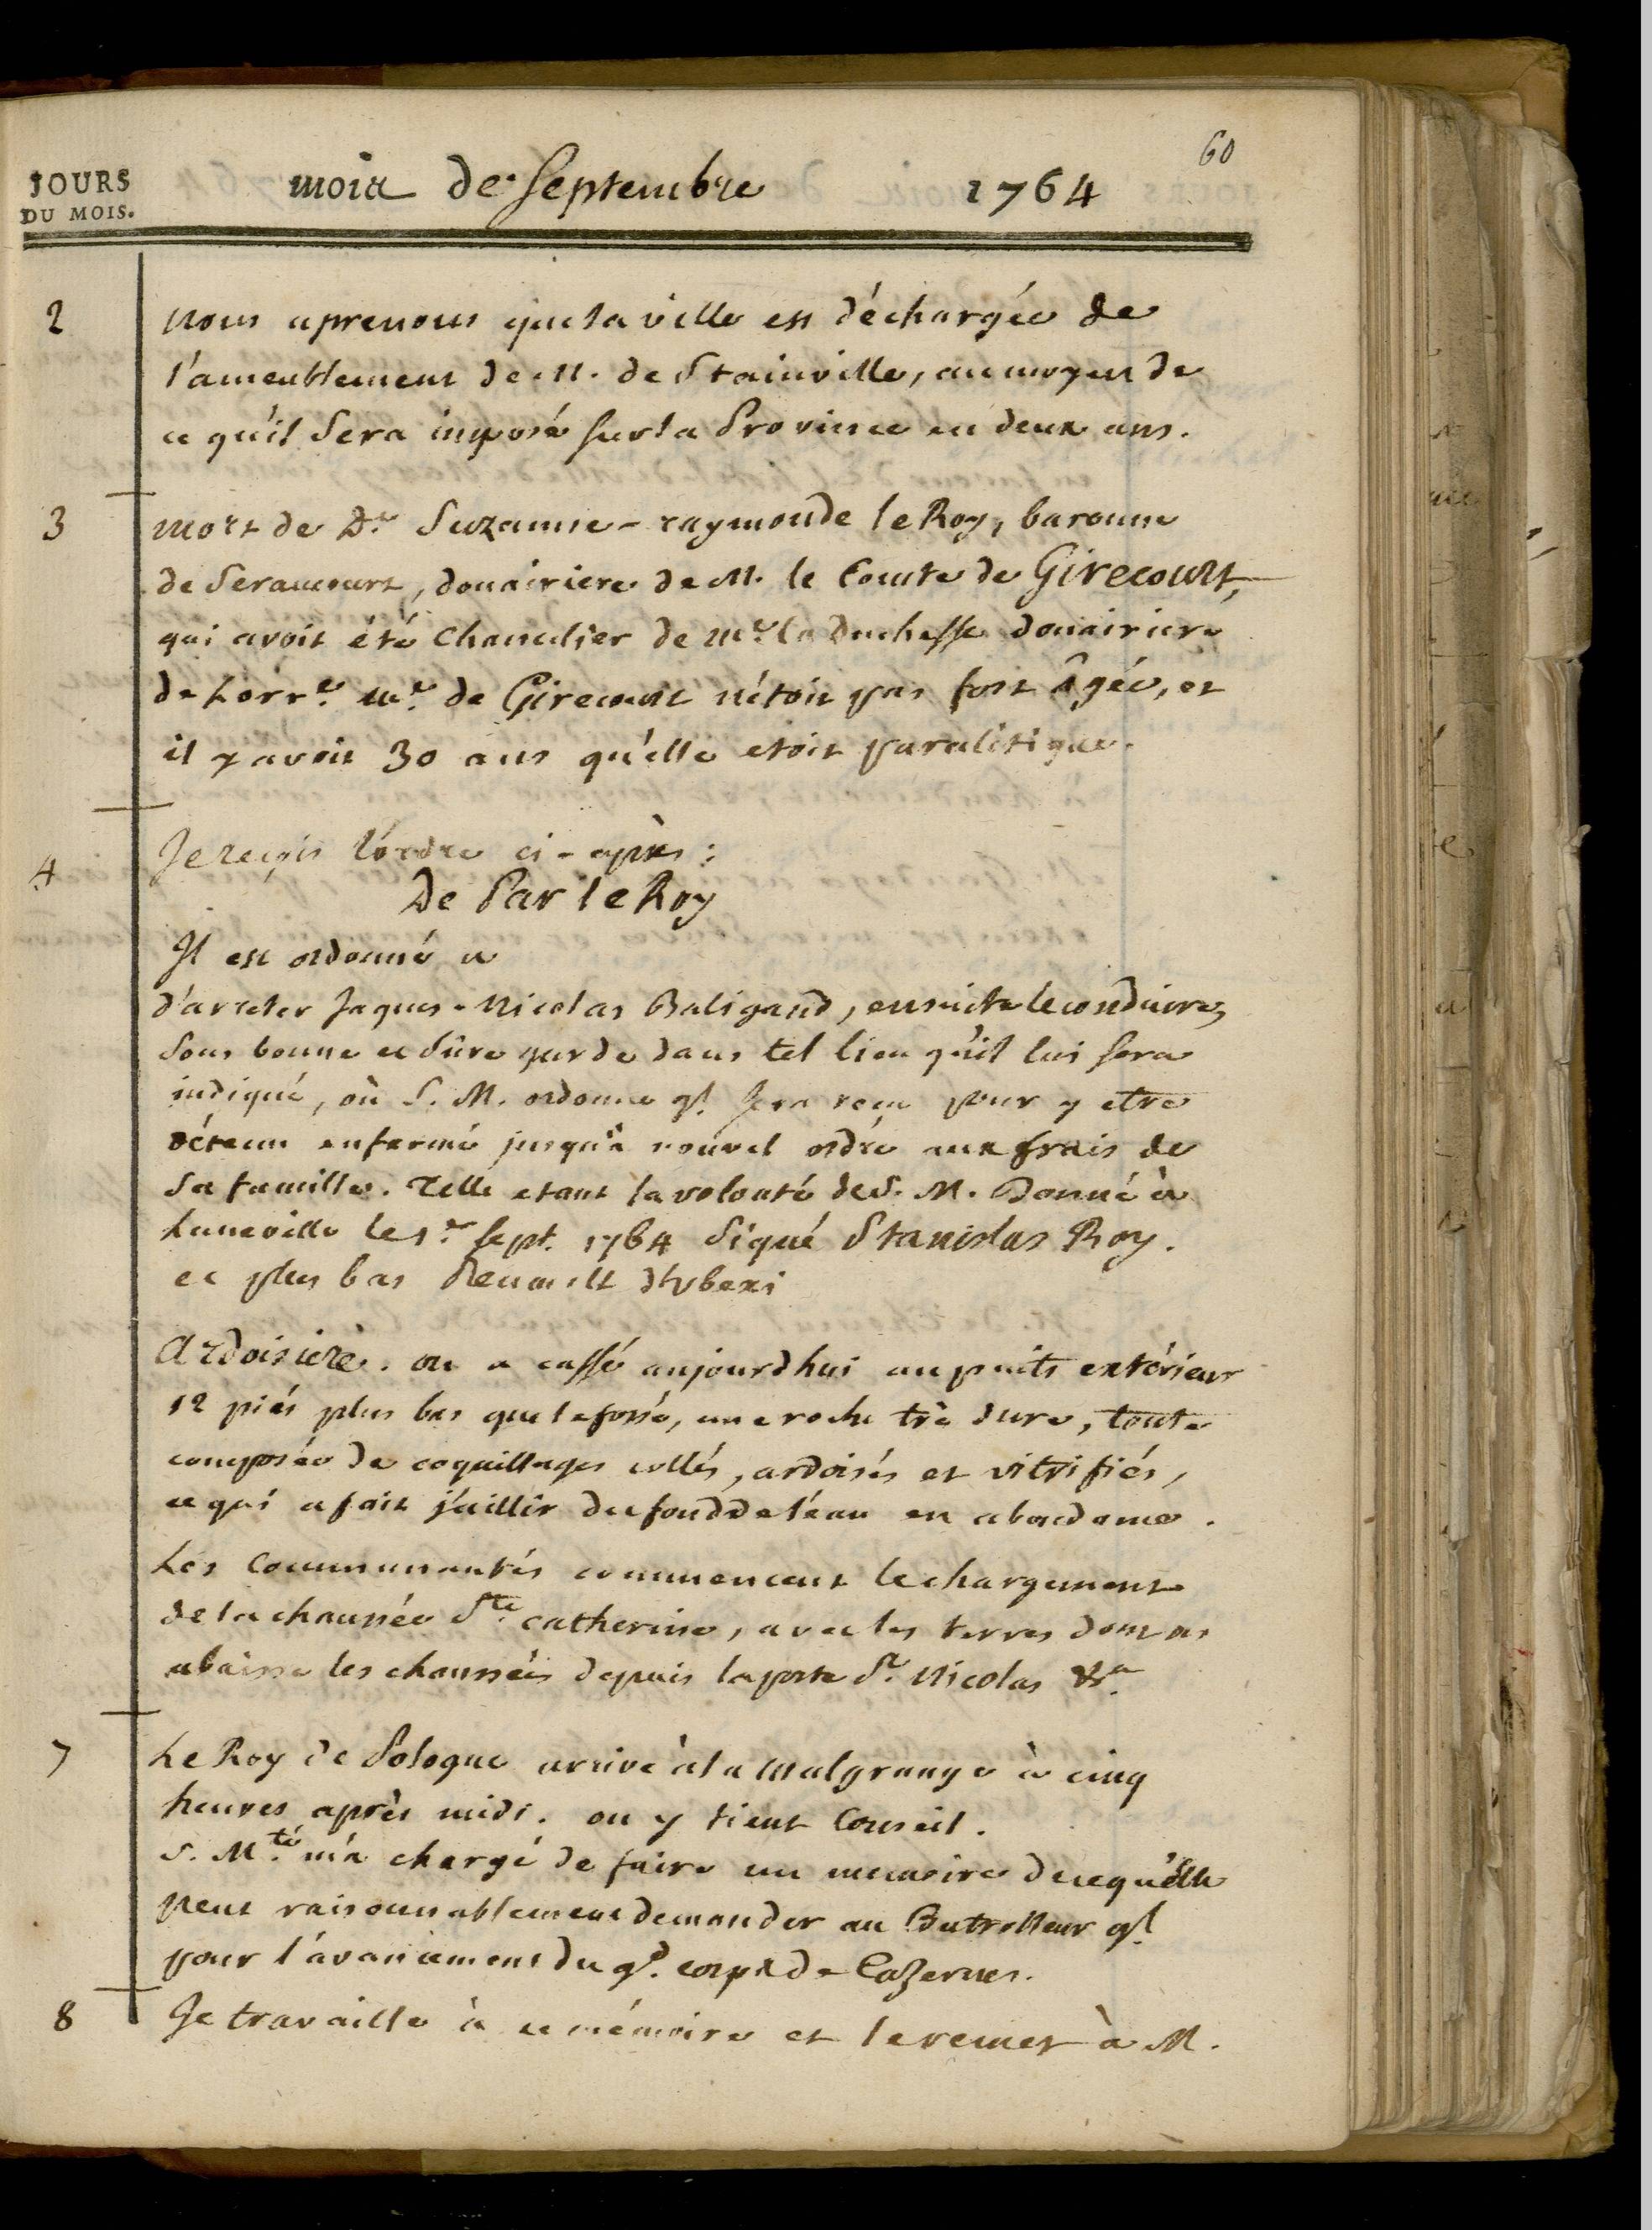 60
JOURS
DU MOIS.
mois de Septembre 1764
2
nous aprenons que la ville est déchargée de
l'ameublement de M. de Stainville, au moyen de
ce qu'il sera imposé sur la Province en deux ans.
3
mort de De. Suzanne-raymonde le Roy, baronne
de Seraucourt, douairiere de M. le Comte de Girecourt,
qui avoit été Chancelier de Me. la Duchesse douairiere
de Lorre. Me. de Girecourt n'étoit pas fort âgée, et
il y avoit 30 ans qu'elle etoit paralitique.
4
Je reçois l'ordre ci-après :
De Par le Roy
Il est ordonné a
d'arreter Jaques-Nicolas Baligand, ensuite le conduire,
sous bonne et sûre garde dans tel lieu qu'il lui sera
indiqué, où S. M. ordonne ql. sera reçu pour y etre
détenu enfermé jusqu'à nouvel ordre aux frais de
sa famille. Telle etant la volonté de S. M. Donné à
Luneville le 1er sept. 1764 signé Stanislas Roy.
et plus bas Renault d'Ubexi
Ardoisière. on a cassé aujourdhui au puits extérieur
12 piés plus bas que le fossé, une roche très dure, toute
composée de coquillages collés, ardoisés et vitrifiés,
ce qui a fait j'aillir du fond de l'eau en abondance.
Les Communautés commencent le chargement
de la chaussée Ste. catherine, avec les terres dont on
abaisse les chaussées depuis la porte St. Nicolas &a.
7
Le Roy de Pologne arrive à la Malgrange à cinq
heures après midi. on y tient Conseil.
S. Mté. m'a chargé de faire un memoire de ce qu'elle
peut raisonnablement demander au Controlleur gl.
pour l'avancement du gd. corps de Cazernes.
8
Je travaille à ce mémoire et le remet à M.